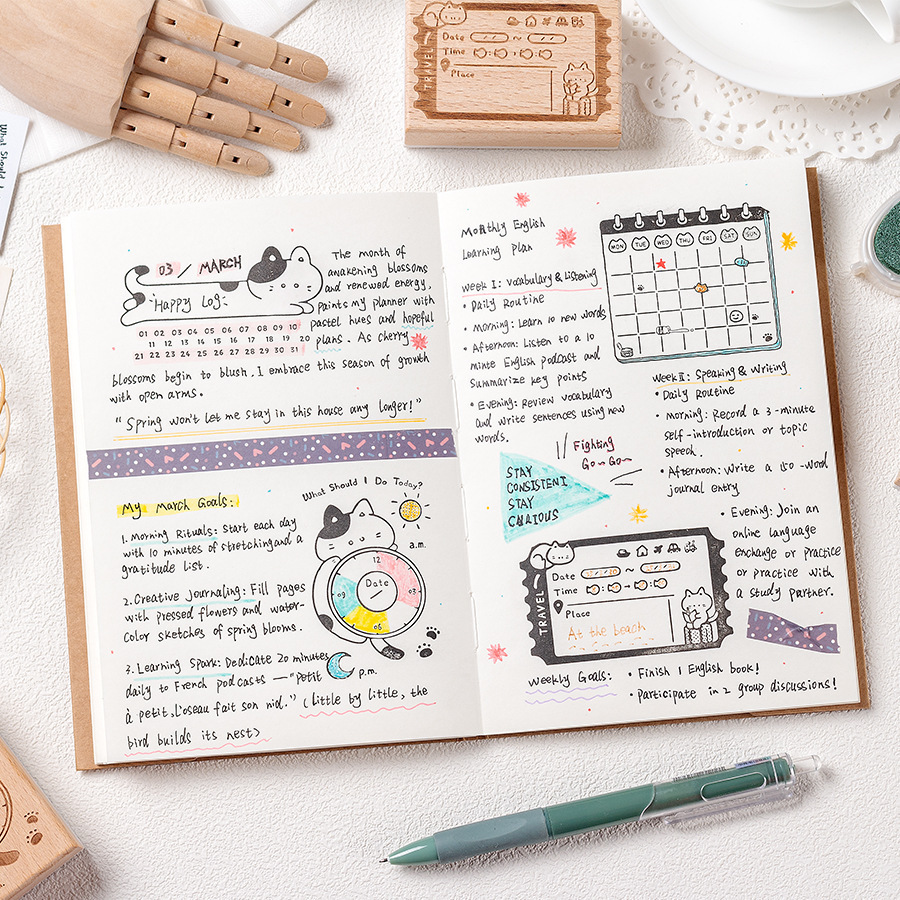 TRAVEL
Date ~
Time
Place
What Should I
03 / MARCH
Happy Log
01 02 03 04 05 06 07 08 09 10
11 12 13 14 15 16 17 18 19 20
21 22 23 24 25 26 27 28 29 30 31
The month of
awakening blossoms
and renewed energy,
paints my planner with
pastel hues and hopeful
plans. As cherry
blossoms begin to blush, I embrace this season of growth
with open arms.
"Spring won't let me stay in this house any longer!"
My March Goals:
1. Morning Rituals: Start each day
with 10 minutes of stretching and a
gratitude list.
2. Creative journaling: Fill pages
with pressed flowers and water-
color sketches of spring blooms.
3. Learning Spark: Dedicate 20 minutes
daily to French podcasts — "Petit
à petit, l'oseau fait son nid." (little by little, the
bird builds its nest>
What Should I Do Today?
a.m.
12
Date
/
03
06
09
p.m.
Monthly English
Learning plan
Week I: Vocabulary & Listening
• Daily Routine
• Morning: Learn 10 new words
• Afternoon: Listen to a 10
minte English podcast and
Summarize key points
• Evening: Review vocabulary
and write sentences using new
words.
MON TUE WED THU FRI SAT SUN
Week II: Speaking & Writing
• Daily Routine
• Morning: Record a 3-minute
self-introduction or topic
speech.
• Afternoon: Write a 150-word
journal entry
• Evening: Join an
online language
exchange or practice
or practice with
a study partner.
Fighting
Go~Go~
STAY
CONSISTENT
STAY
CURIOUS
TRAVEL
Date ~
Time
Place
At the beach
Weekly Goals:
• Finish 1 English book!
• Participate in 2 group discussions!